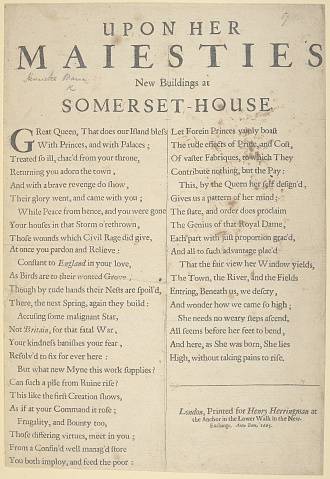 UPON HER
MAIESTIES
New Buildings at
SOMERSET-HOUSE
GReat Queen, That does our Island bless
With Princes, and with Palaces;
Treated so ill, chac'd from your throne,
Returning you adorn the town,
And with a brave revenge do show,
Their glory went, and came with you;
While Peace from hence, and you were gone
Your houses in that Storm o'rethrown,
Those wounds which Civil Rage did give,
At once you pardon and Relieve:
Constant to England in your love,
As Birds are to their wonted Grove;
Though by rude hands their Nests are spoil'd,
There, the next Spring, again they build:
Accusing some malignant Star,
Not Britain, for that fatal War,
Your kindness banishes your fear,
Resolv'd to fix for ever here:
But what new Myne this work supplies?
Can such a pile from Ruine rise?
This like the first Creation shows,
As if at your Command it rose;
Frugality, and Bounty too,
Those differing virtues, meet in you;
From a Confin'd well manag'd store
You both imploy, and feed the poor:
Let Forein Princes vainly boast
The rude effects of Pride, and Cost,
Of vaster Fabriques, to which They
Contribute nothing, but the Pay:
This, by the Queen her self design'd,
Gives us a pattern of her mind;
The state, and order does proclaim
The Genius of that Royal Dame,
Each part with just proportion grac'd,
And all to such advantage plac'd
That the fair view her Window yields,
The Town, the River, and the Fields
Entring, Beneath us, we descry,
And wonder how we came so high;
She needs no weary steps ascend,
All seems before her feet to bend,
And here, as She was born, She lies
High, without taking pains to rise.
London, Printed for Henry Herringman at
the Anchor in the Lower Walk in the New-
Exchange. Anno Dom, 1665.